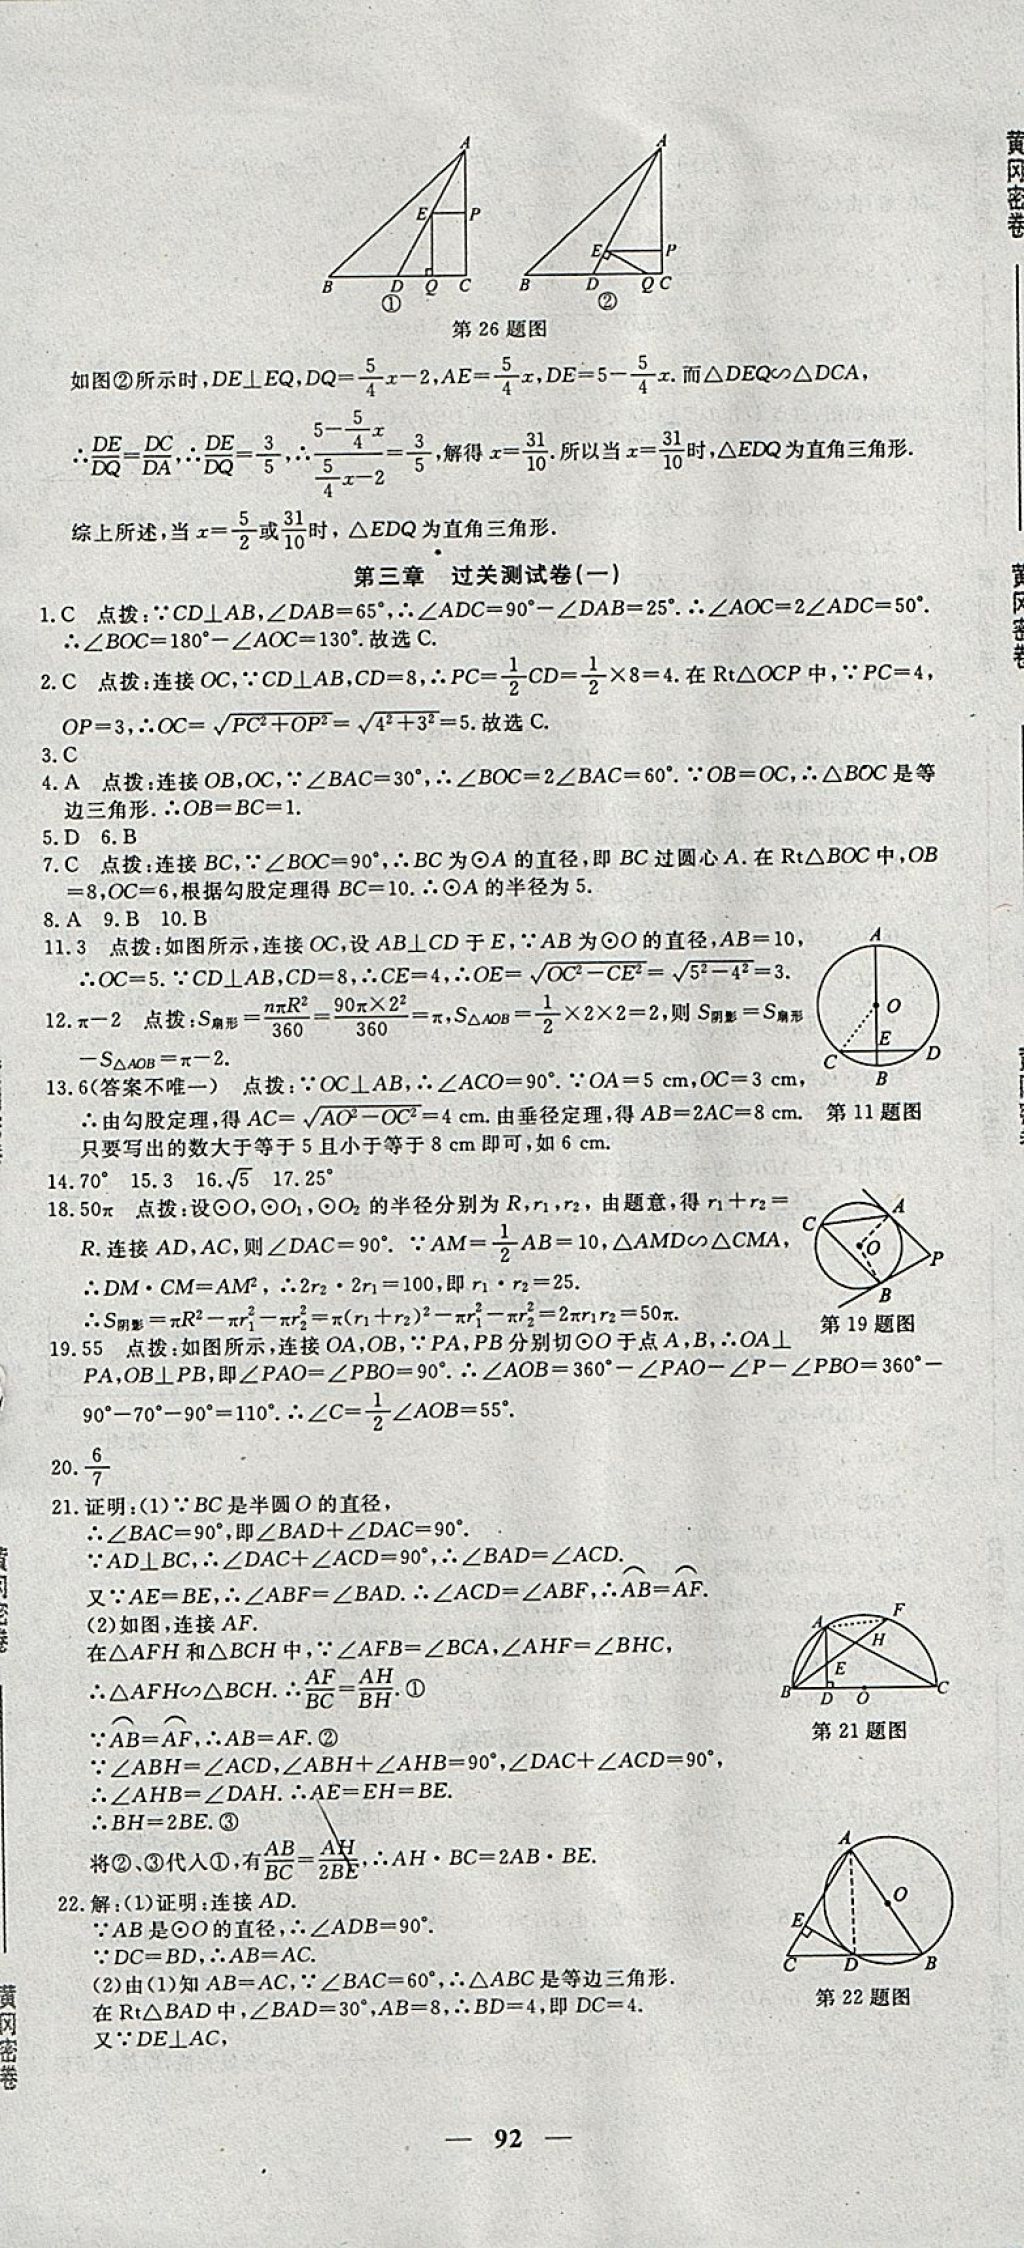 A
E
P
B
D
Q
C
①
A
E
P
B
D
Q
C
②
第26题图
如图②所示时,DE⊥EQ,DQ=5/4x-2,AE=5/4x,DE=5-5/4x.而△DEQ∽△DCA,
∴DE/DQ=DC/DA,∴DE/DQ=3/5,∴(5-5/4x)/(5/4x-2)=3/5,解得x=31/10.所以当x=31/10时,△EDQ为直角三角形.
综上所述,当x=5/2或31/10时,△EDQ为直角三角形.
第三章 过关测试卷(一)
1.C 点拨:∵CD⊥AB,∠DAB=65°,∴∠ADC=90°-∠DAB=25°.∴∠AOC=2∠ADC=50°.
∴∠BOC=180°-∠AOC=130°.故选C.
2.C 点拨:连接OC,∵CD⊥AB,CD=8,∴PC=1/2CD=1/2×8=4.在Rt△OCP中,∵PC=4,
OP=3,∴OC=√(PC²+OP²)=√(4²+3²)=5.故选C.
3.C
4.A 点拨:连接OB,OC,∵∠BAC=30°,∴∠BOC=2∠BAC=60°.∵OB=OC,∴△BOC是等
边三角形.∴OB=BC=1.
5.D 6.B
7.C 点拨:连接BC,∵∠BOC=90°,∴BC为⊙A的直径,即BC过圆心A.在Rt△BOC中,OB
=8,OC=6,根据勾股定理得BC=10.∴⊙A的半径为5.
8.A 9.B 10.B
11.3 点拨:如图所示,连接OC,设AB⊥CD于E,∵AB为⊙O的直径,AB=10,
∴OC=5.∵CD⊥AB,CD=8,∴CE=4,∴OE=√(OC²-CE²)=√(5²-4²)=3.
12.π-2 点拨:S扇形=nπR²/360=90π×2²/360=π,S△AOB=1/2×2×2=2,则S阴影=S扇形
-S△AOB=π-2.
13.6(答案不唯一) 点拨:∵OC⊥AB,∴∠ACO=90°.∵OA=5 cm,OC=3 cm,
∴由勾股定理,得AC=√(AO²-OC²)=4 cm.由垂径定理,得AB=2AC=8 cm.
只要写出的数大于等于5且小于等于8 cm即可,如6 cm.
A
O
E
C
D
B
第11题图
14.70° 15.3 16.√5 17.25°
18.50π 点拨:设⊙O,⊙O₁,⊙O₂的半径分别为R,r₁,r₂,由题意,得r₁+r₂=
R.连接AD,AC,则∠DAC=90°.∵AM=1/2AB=10,△AMD∽△CMA,
∴DM·CM=AM²,∴2r₂·2r₁=100,即r₁·r₂=25.
∴S阴影=πR²-πr₁²-πr₂²=π(r₁+r₂)²-πr₁²-πr₂²=2πr₁r₂=50π.
C
A
O
P
B
第19题图
19.55 点拨:如图所示,连接OA,OB,∵PA,PB分别切⊙O于点A,B,∴OA⊥
PA,OB⊥PB,即∠PAO=∠PBO=90°.∴∠AOB=360°-∠PAO-∠P-∠PBO=360°-
90°-70°-90°=110°.∴∠C=1/2∠AOB=55°.
20.6/7
21.证明:(1)∵BC是半圆O的直径,
∴∠BAC=90°,即∠BAD+∠DAC=90°.
∵AD⊥BC,∴∠DAC+∠ACD=90°,∴∠BAD=∠ACD.
又∵AE=BE,∴∠ABF=∠BAD.∴∠ACD=∠ABF,∴⌒AB=⌒AF.
(2)如图,连接AF.
在△AFH和△BCH中,∵∠AFB=∠BCA,∠AHF=∠BHC,
∴△AFH∽△BCH.∴AF/BC=AH/BH.①
∵⌒AB=⌒AF,∴AB=AF.②
∵∠ABH=∠ACD,∠ABH+∠AHB=90°,∠DAC+∠ACD=90°,
∴∠AHB=∠DAH.∴AE=EH=BE.
∴BH=2BE.③
将②、③代入①,有AB/BC=AH/2BE,∴AH·BC=2AB·BE.
A
F
H
E
B
D
O
C
第21题图
22.解:(1)证明:连接AD.
∵AB是⊙O的直径,∴∠ADB=90°.
∵DC=BD,∴AB=AC.
(2)由(1)知AB=AC,∵∠BAC=60°,∴△ABC是等边三角形.
在Rt△BAD中,∠BAD=30°,AB=8,∴BD=4,即DC=4.
又∵DE⊥AC,
A
O
E
C
D
B
第22题图
— 92 —
黄冈密卷
黄冈密卷
黄冈密卷